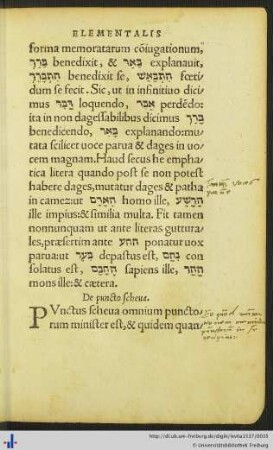 ELEMENTALIS
forma memoratarum cōiugationum,
בֵּרֵךְ benedixit, & בֵּאֵר explanauit,
הִתְבָּרֵךְ benedixit se, הִתְבָּאֵשׁ fœti
dum se fecit. Sic, ut in infinitiuo dici
mus דַּבֵּר loquendo, אַבֵּד perdēdo:
ita in non dagessabilibus dicimus בָּרֵךְ
benedicendo, בָּאֵר explanando: mu
tata scilicet uoce parua & dages in uo
cem magnam. Haud secus he empha
tica litera quando post se non potest
habere dages, mutatur dages & patha
in camez: ut הָאָדָם homo ille, הָרָשָׁע
ille impius: & similia multa. Fit tamen
nonnunquam ut ante literas guttura-
les, præsertim ante חהע ponatur uox
parua: ut בִּעֵר depastus est, נִחַם con
solatus est, הַחָכָם sapiens ille, הַהַר
mons ille: & cætera.
De puncto scheua.
PVnctus scheua omnium puncto-
rum minister est, & quidem quan
http://dl.ub.uni-freiburg.de/diglit/
© Universitätsbibliothek Freiburg